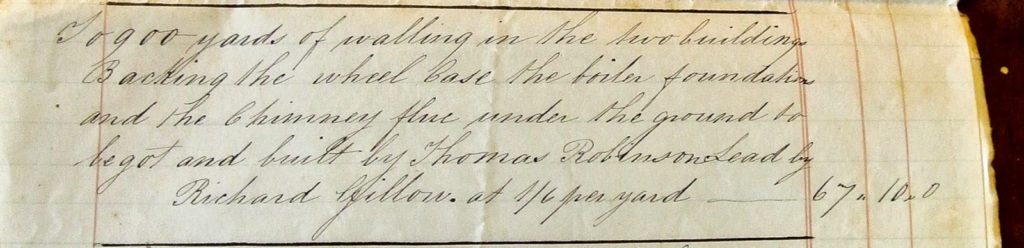 To 900 yards of walling in the two buildings
Backing the wheel Case the boiler foundation
and the Chimney flue under the ground to
be got and built by Thomas Robinson Lead by
Richard Gillow. at 1/6 per yard — 67 " 10 " 0